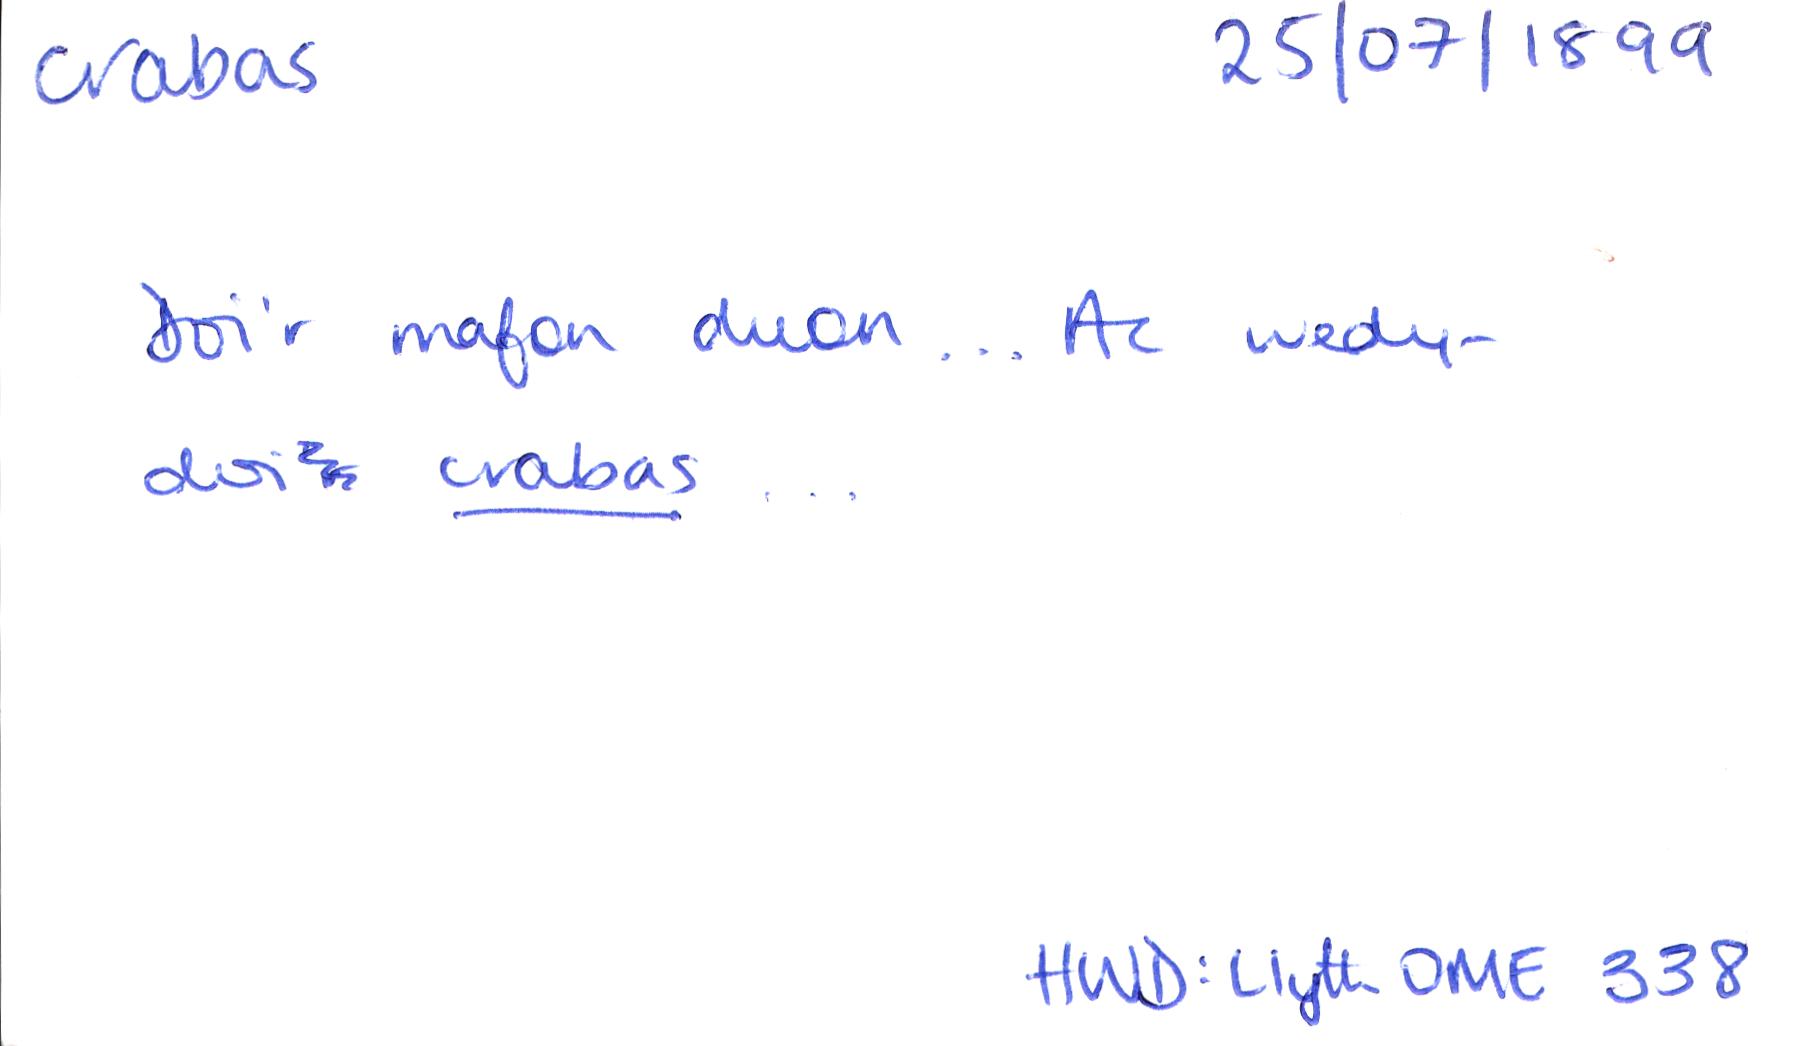 crabas 25/07/1899
Doi'r mafon duon ... Ac wedy-
doi crabas ...
HWD: Llyth OME 338